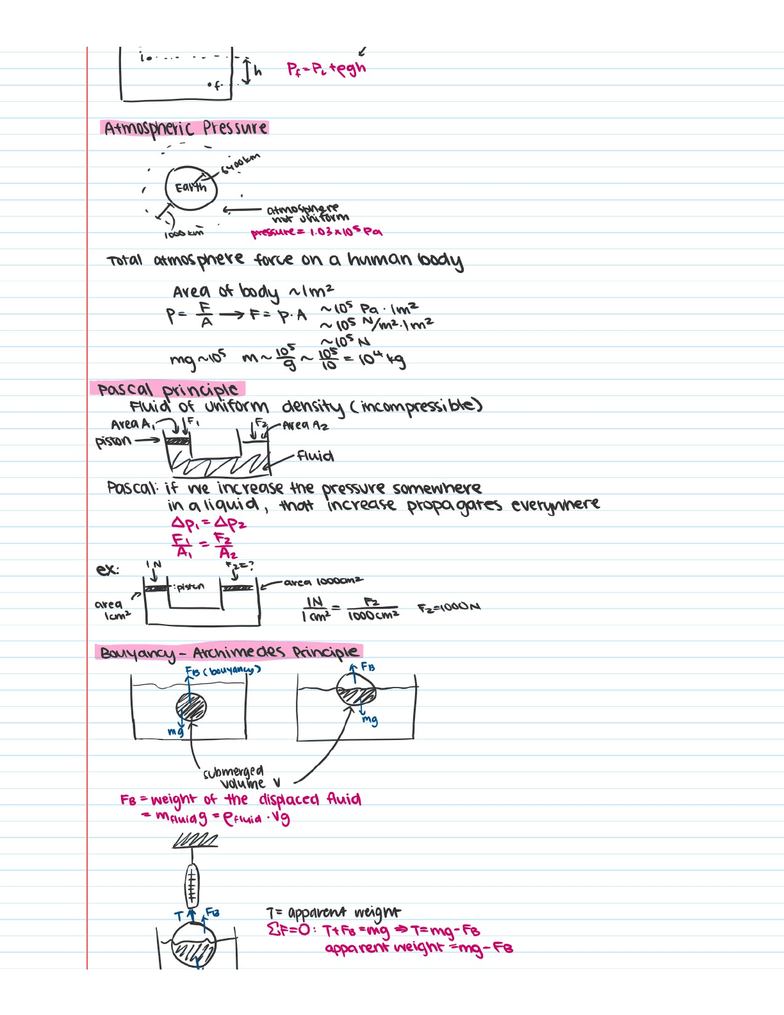 i
h
P_f = P_i + ρgh
f
Atmospheric Pressure
6400km
Earth
atmosphere
not uniform
1000km
pressure = 1.03 x 10⁵ Pa
Total atmosphere force on a human body
Area of body ~1m²
P = F/A → F = P·A ~10⁵ Pa · 1m²
~10⁵ N/m² · 1m²
~10⁵ N
mg ~10⁵ m ~ 10⁵/g ~ 10⁵/10 = 10⁴ kg
Pascal principle
Fluid of uniform density (incompressible)
Area A₁ F₁ F₂ Area A₂
piston
fluid
Pascal: if we increase the pressure somewhere
in a liquid, that increase propagates everywhere
Δp₁ = Δp₂
F₁/A₁ = F₂/A₂
ex: 1N F₂=?
piston area 1000cm²
area
1cm²
1N/1cm² = F₂/1000cm² F₂=1000N
Bouyancy - Archimedes Principle
F_B (bouyancy) F_B
mg mg
submerged
volume V
F_B = weight of the displaced fluid
= m_fluid g = ρ_fluid · Vg
T F_B T = apparent weight
ΣF=0: T+F_B = mg ⇒ T = mg-F_B
apparent weight = mg-F_B